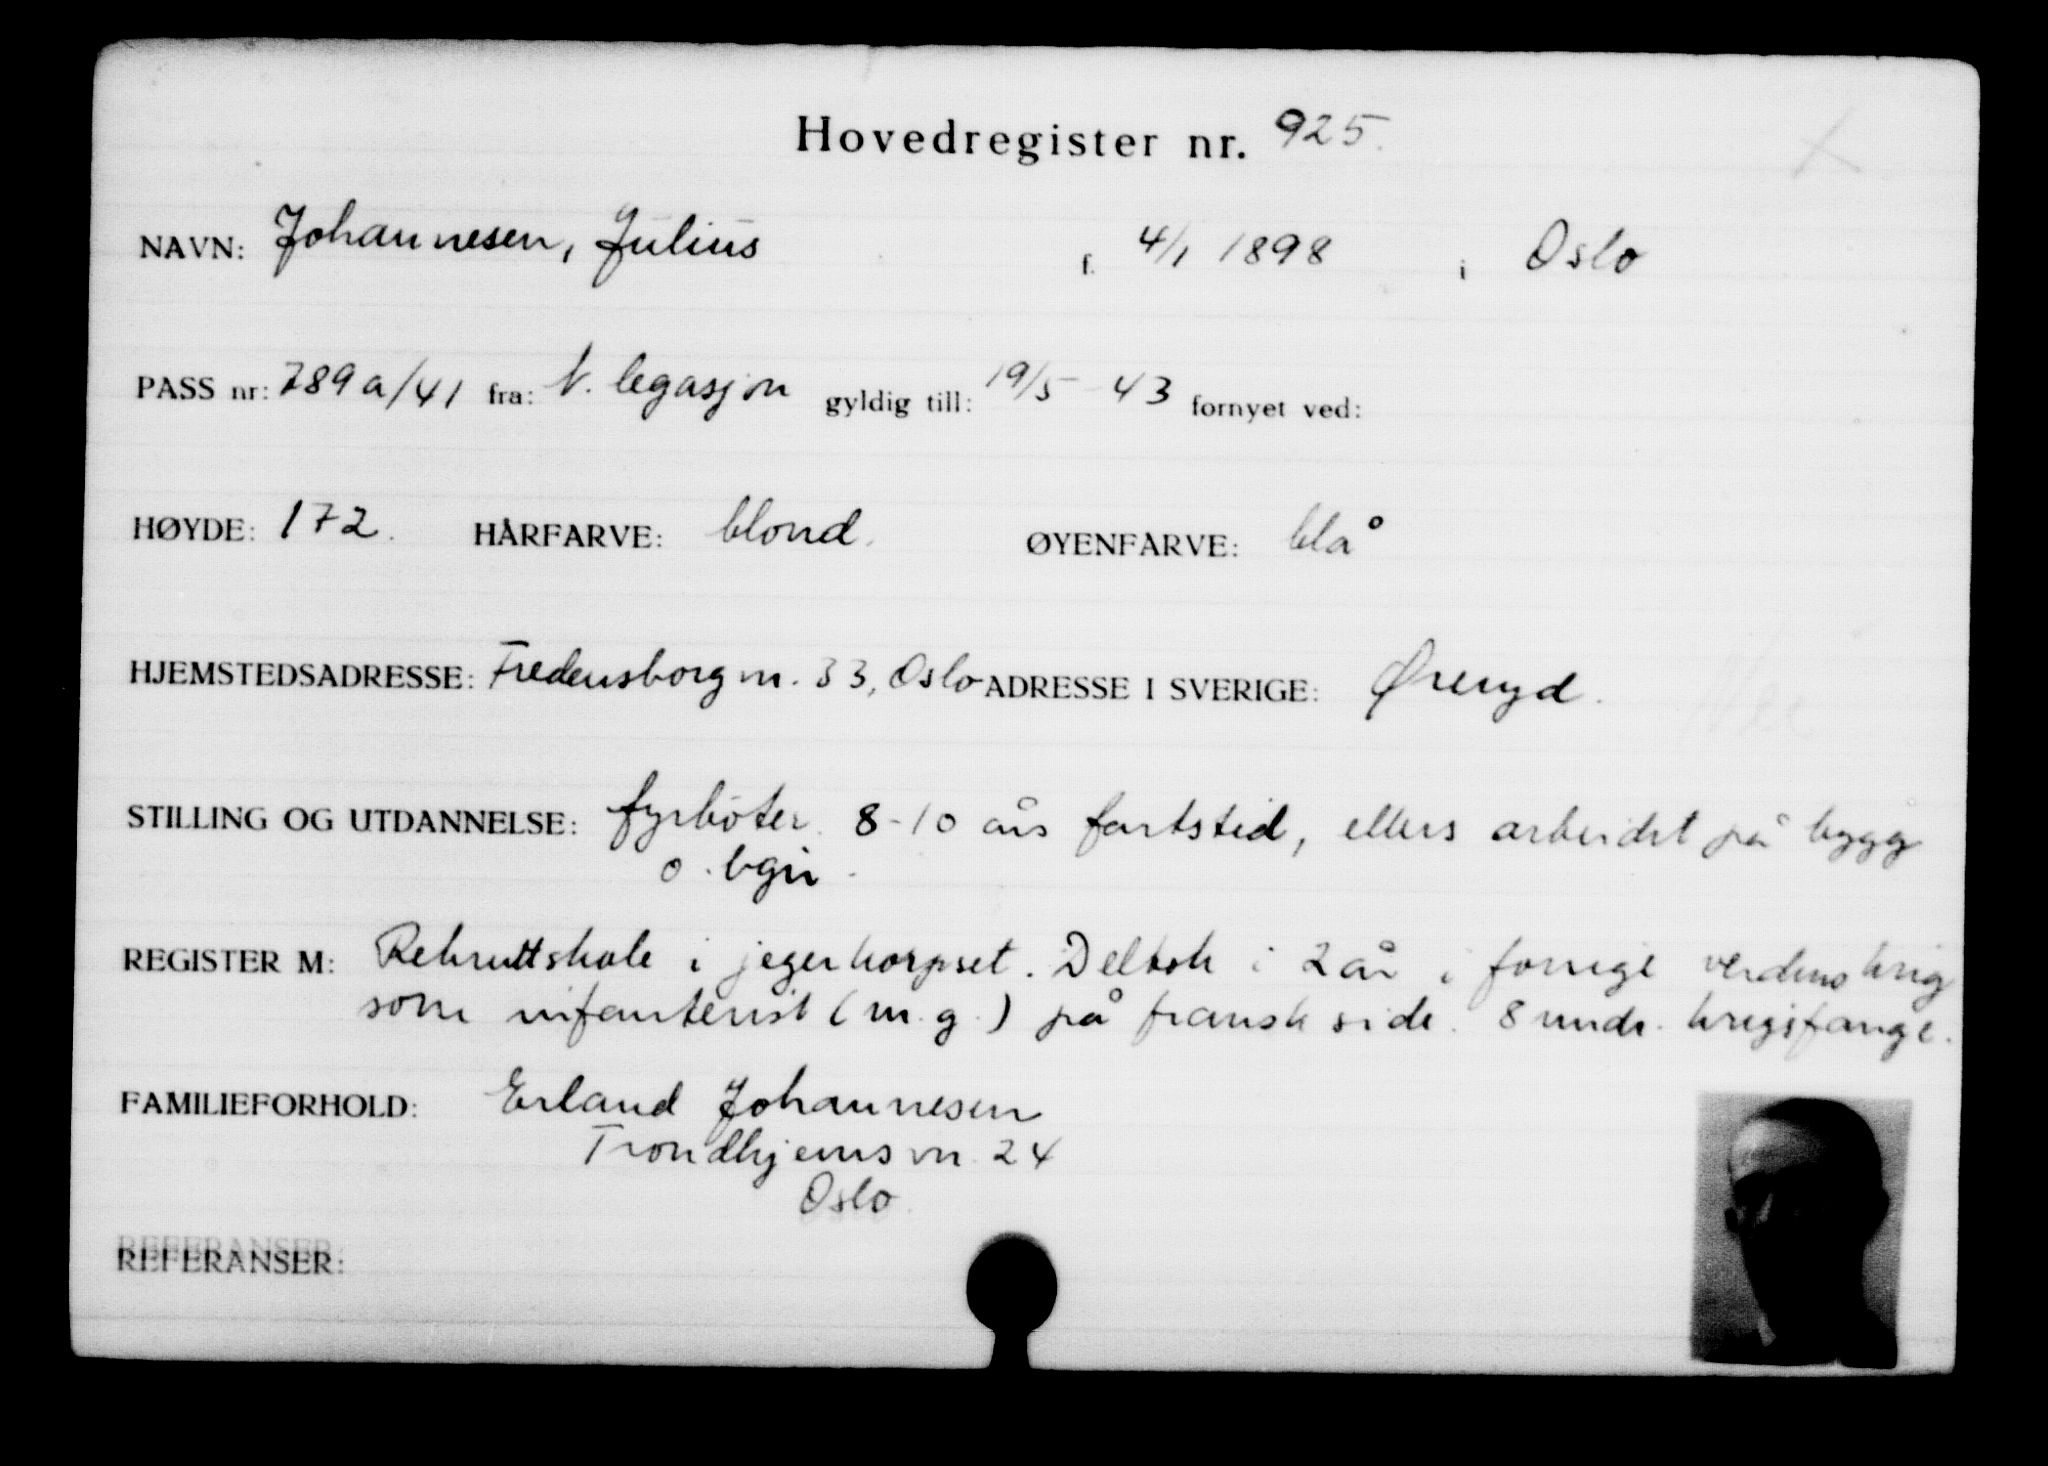 Hovedregister nr. 925.
NAVN: Johannesen, Julius f. 4/1 1898 i Oslo
PASS nr: 789a/41 fra: N. legasjon gyldig till: 19/5 - 43 fornyet ved:
HØYDE: 172. HÅRFARVE: blond. ØYENFARVE: blå
HJEMSTEDSADRESSE: Fredensborgvn. 33, Oslo ADRESSE I SVERIGE: Øreryd.
STILLING OG UTDANNELSE: fyrbøter. 8-10 års fartstid, ellers arbeidet på bygg
o.
REGISTER M: Rekruttskole i jegerkorpset. Deltok i 2 år i forrige verdenskrig
som infanterist (m.g.) på fransk side. 8 mndr. krigsfange.
FAMILIEFORHOLD: Erland Johannesen
Trondhjemsvn. 24
Oslo.
REFERANSER: